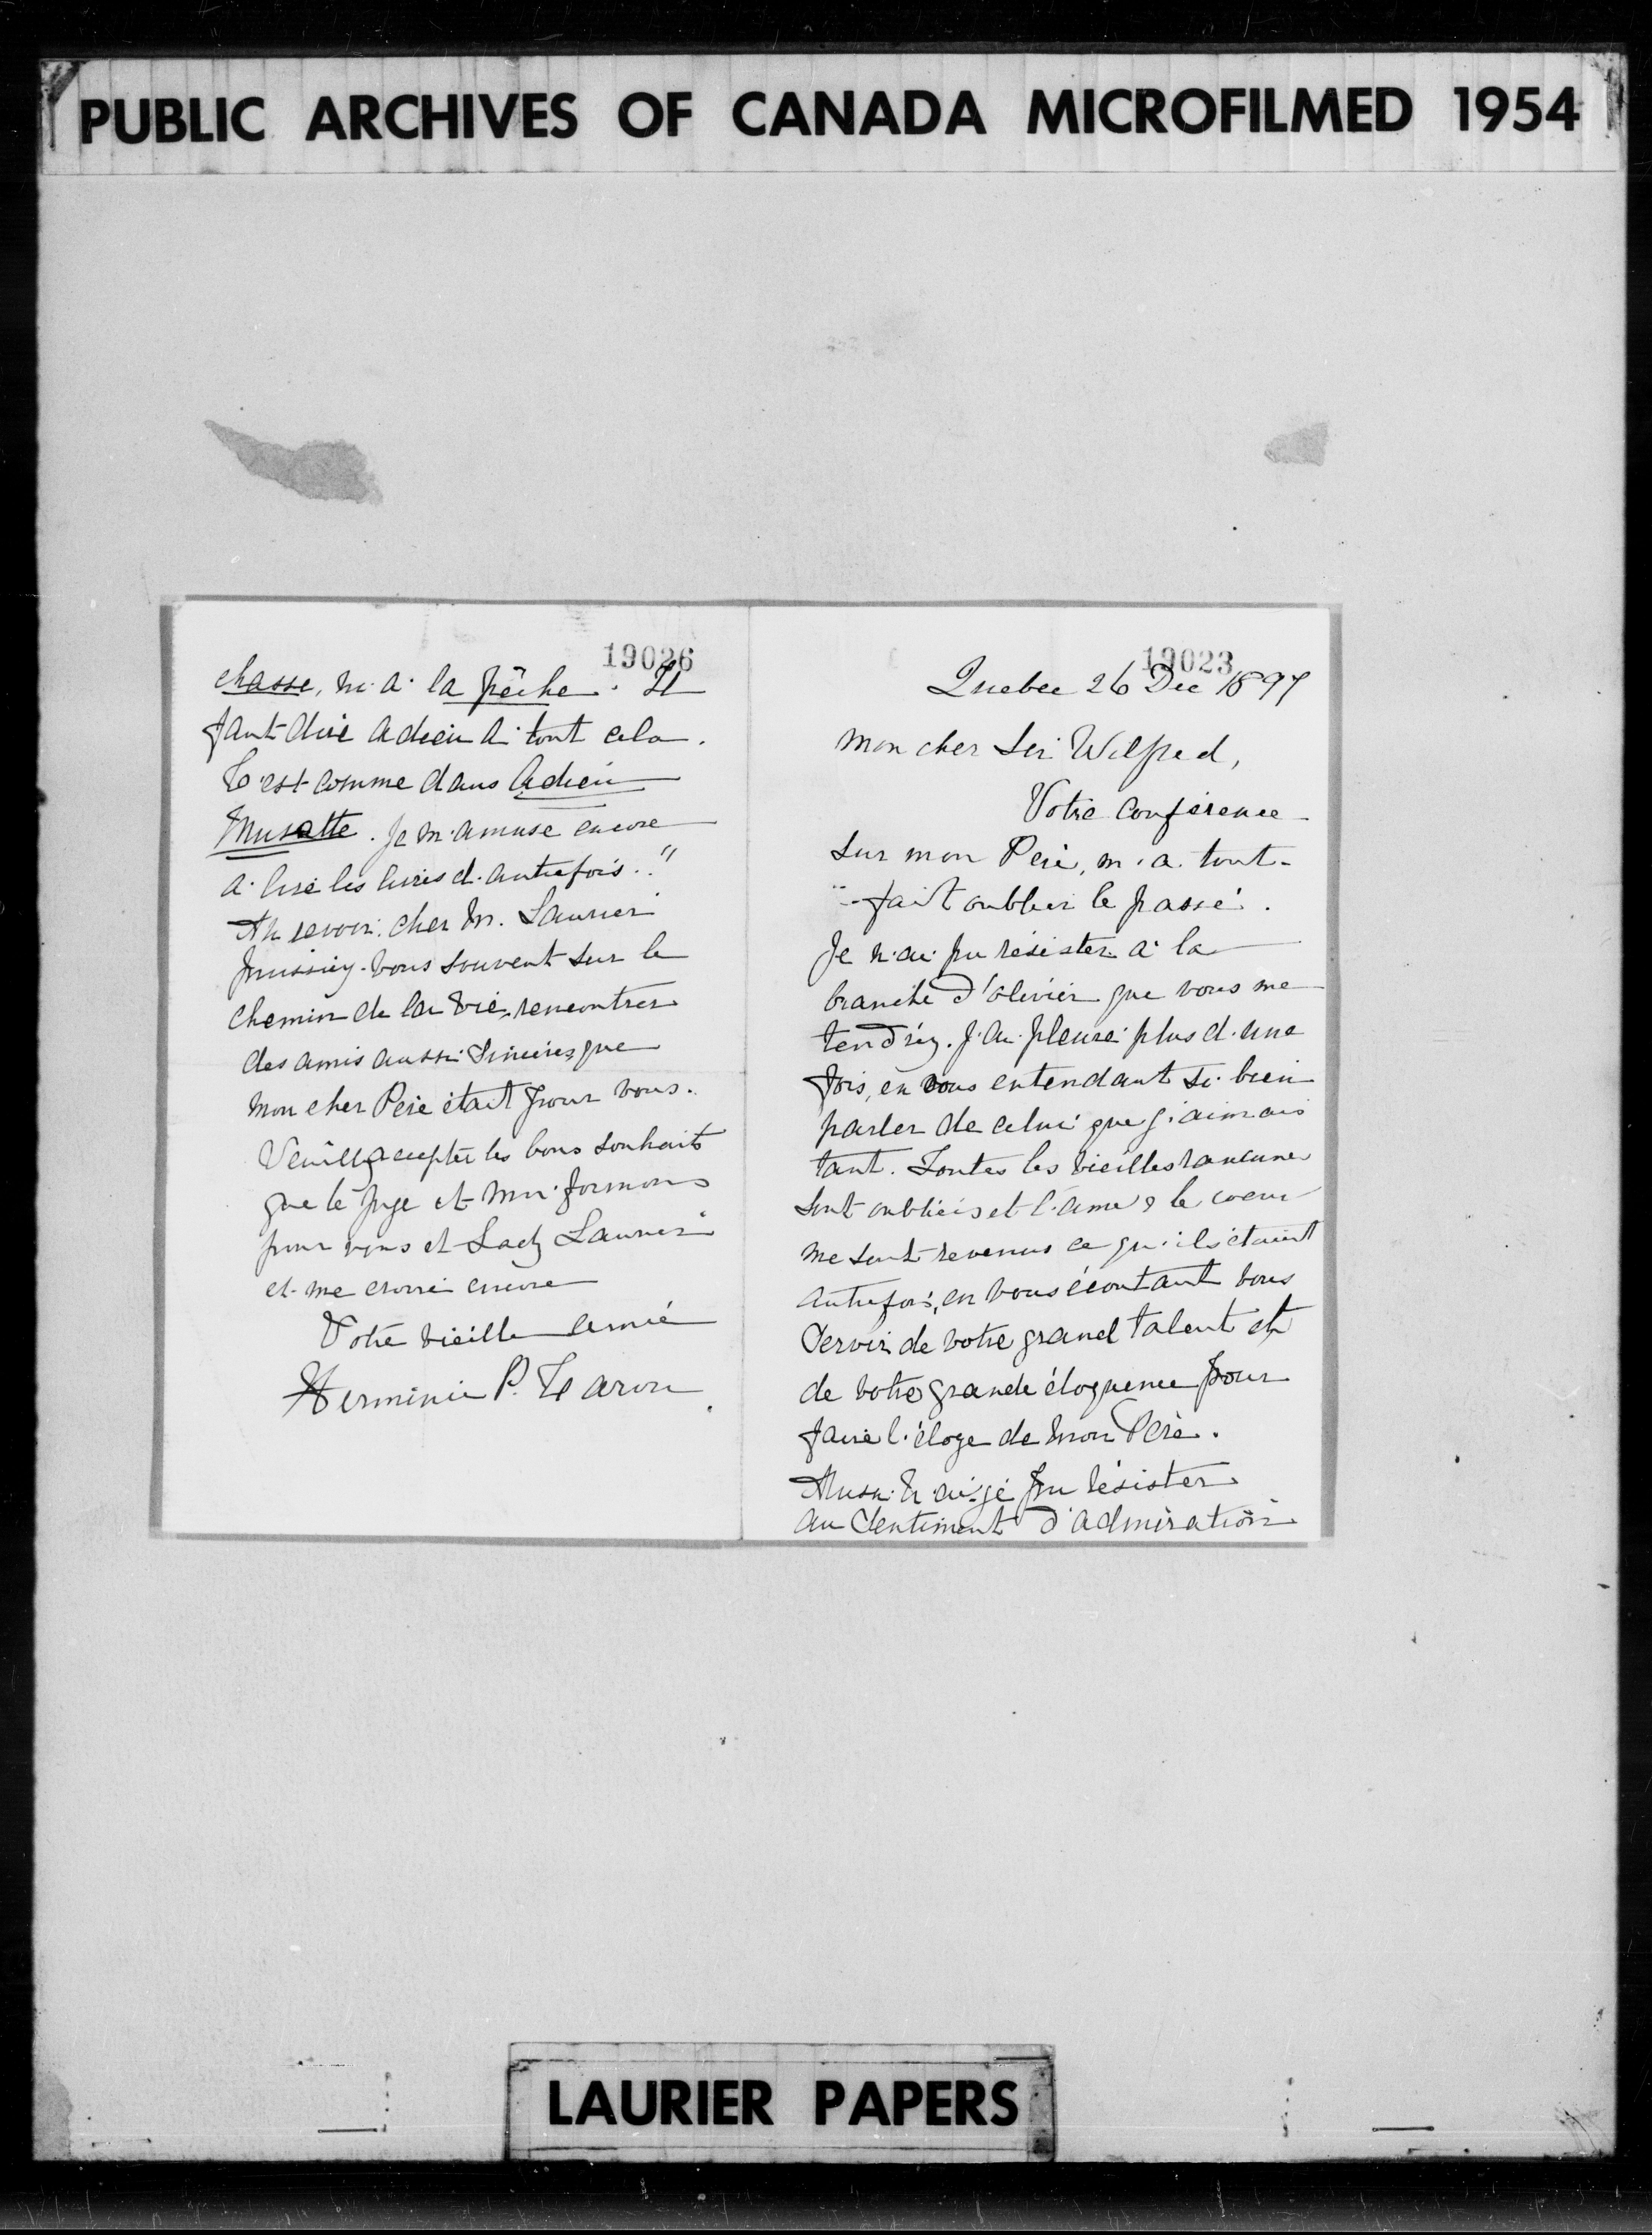 PUBLIC ARCHIVES OF CANADA MICROFILMED 1954
19026
chasse, ni à la pêche. Il
faut dire adieu à tout cela.
C'est comme dans Adieu
Musette. Je m'amuse encore
à lire les livres d'autrefois."
Au revoir, cher Mr. Laurier
puissiez-vous souvent sur le
chemin de la vie, rencontrer
des amis aussi sincères que
mon cher Père était pour vous.
Veuillez accepter les bons souhaits
que le Juge et moi formons
pour vous et Lady Laurier
et me croire encore
Votre vieille amie
Herminie P. Caron
19023
Quebec 26 Dec 1897
Mon cher Sir Wilfred,
Votre conférence
sur mon Père, m'a tout-
fait oublier le passé.
Je n'ai pu résister à la
branche d'olivier que vous me
tendriez. J'ai pleuré plus d'une
fois, en vous entendant si bien
parler de celui que j'aimais
tant. Toutes les vieilles rancunes
sont oubliées et l'âme & le coeur
me sont revenus ce qu'ils étaient
autrefois, en vous écoutant vous
servir de votre grand talent et
de votre grande éloquence pour
faire l'éloge de mon Père.
Aussi n'ai-je pu résister
au sentiment d'admiration
LAURIER PAPERS